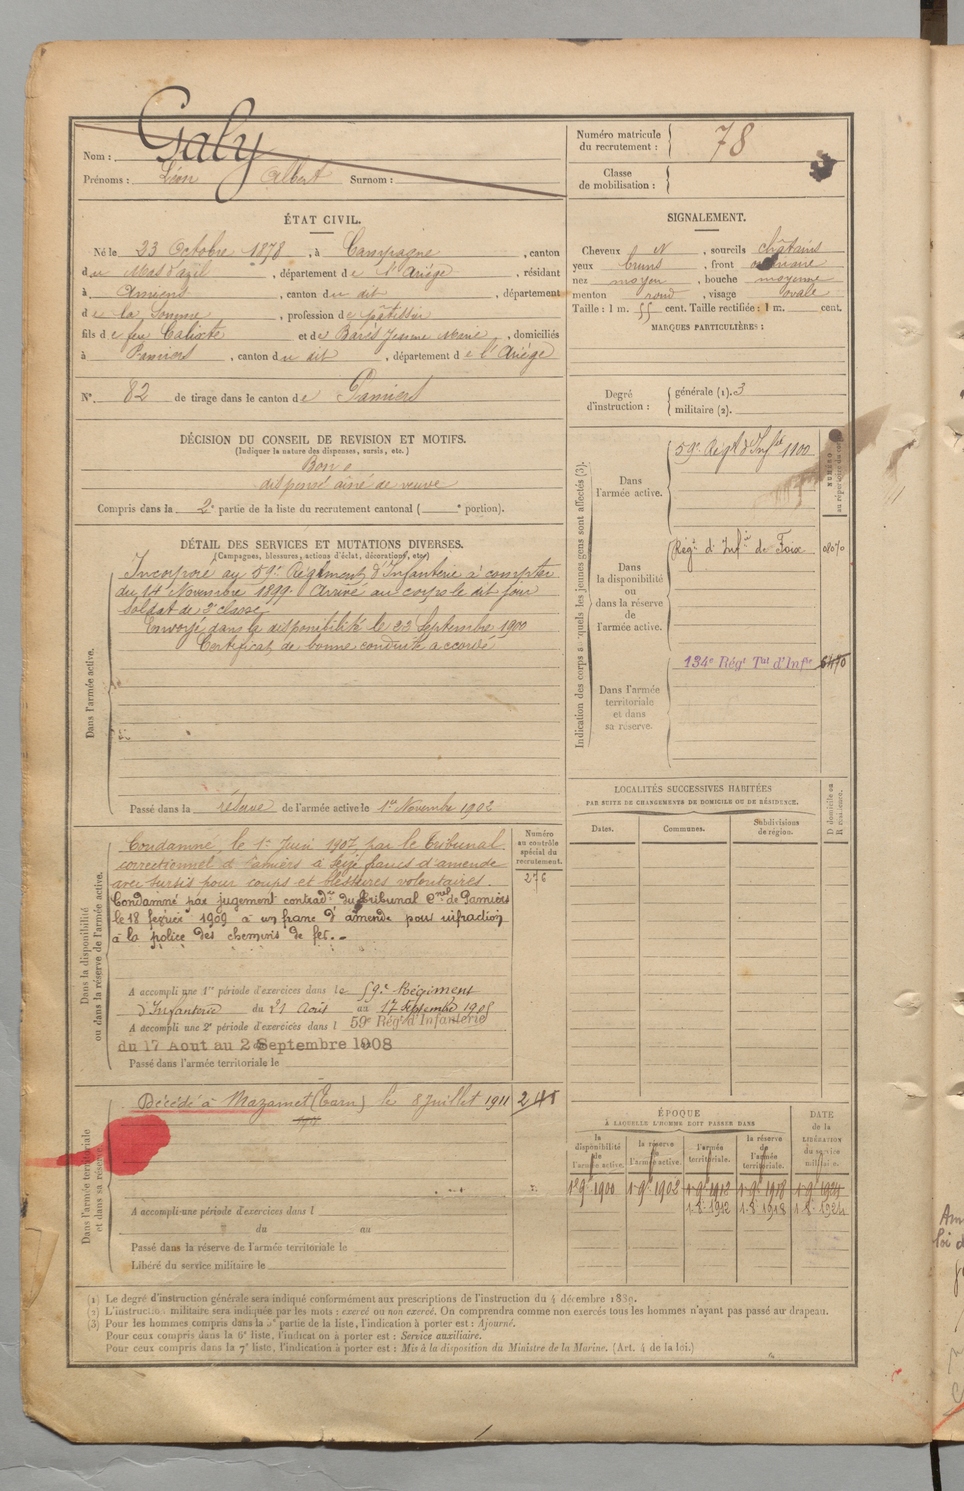 Nom : Galy
Prénoms : Léon Albert Surnom :
Numéro matricule du recrutement : 78
Classe de mobilisation :
ÉTAT CIVIL.
Né le 23 Octobre 1878, à Campagne, canton
du Mas d'azil, département de l'Ariège, résidant
à Amiens, canton du dit, département
de la Somme, profession de pâtissier
fils de feu Calixte et de Barès Jeanne Marie, domiciliés
à Pamiers, canton du dit, département de l'Ariège
N° 82 de tirage dans le canton de Pamiers
SIGNALEMENT.
Cheveux N, sourcils châtains
yeux bruns, front ordinaire
nez moyen, bouche moyenne
menton rond, visage ovale
Taille : 1 m. 55 cent. Taille rectifiée : 1 m. cent.
MARQUES PARTICULIÈRES :
Degré d'instruction : générale (1). 3
militaire (2).
DÉCISION DU CONSEIL DE REVISION ET MOTIFS.
(Indiquer la nature des dispenses, sursis, etc.)
Bon
dispensé aîné de veuve
Compris dans la 2e partie de la liste du recrutement cantonal ( e portion).
DÉTAIL DES SERVICES ET MUTATIONS DIVERSES.
(Campagnes, blessures, actions d'éclat, décorations, etc.)
Dans l'armée active.
Incorporé au 59e Régiment d'Infanterie à compter
du 14 Novembre 1899. Arrivé au corps le dit jour
soldat de 2e classe
Envoyé dans la disponibilité le 23 Septembre 1900
Certificat de bonne conduite accordé
Passé dans la réserve de l'armée active le 1er Novembre 1902
Indication des corps auxquels les jeunes gens sont affectés (3).
NUMÉRO au répertoire du corps
Dans l'armée active.
59e Régt d'Infie 1900
Dans la disponibilité ou dans la réserve de l'armée active.
Régt d'Infie de Foix
Dans l'armée territoriale et dans sa réserve.
134e Régt Tal d'Infie
LOCALITÉS SUCCESSIVES HABITÉES
PAR SUITE DE CHANGEMENTS DE DOMICILE OU DE RÉSIDENCE.
Dates. Communes. Subdivisions de région.
Domicile ou Résidence.
Dans la disponibilité ou dans la réserve de l'armée active.
Numéro au contrôle spécial du recrutement.
276
Condamné, le 1er Juin 1907, par le Tribunal
correctionnel de Pamiers à seize francs d'amende
avec sursis pour coups et blessures volontaires.
Condamné par jugement contradre du tribunal Cnel de Pamiers
le 18 février 1909 à un franc d'amende pour infraction
à la police des chemins de fer.
A accompli une 1re période d'exercices dans le 59e Régiment
d'Infanterie du 21 Août au 17 Septembre 1905
A accompli une 2e période d'exercices dans l 59e Régt d'Infanterie
du 17 Aout au 2 Septembre 1908
Passé dans l'armée territoriale le
Dans l'armée territoriale et dans sa réserve.
Décédé à Mazamet (Tarn) le 8 Juillet 1911
A accompli une période d'exercices dans l
du au
Passé dans la réserve de l'armée territoriale le
Libéré du service militaire le
ÉPOQUE
À LAQUELLE L'HOMME DOIT PASSER DANS
DATE de la LIBÉRATION du service militaire.
la disponibilité de l'armée active. la réserve de l'armée active. l'armée territoriale. la réserve de l'armée territoriale.
1 9e 1900 1 9e 1902 1 9e 1912 1 9e 1918 1 9e 1924
1 8e 1912 1 8e 1918 1 8e 1924
(1) Le degré d'instruction générale sera indiqué conformément aux prescriptions de l'instruction du 4 décembre 1889.
(2) L'instruction militaire sera indiquée par les mots : exercé ou non exercé. On comprendra comme non exercés tous les hommes n'ayant pas passé au drapeau.
(3) Pour les hommes compris dans la 5e partie de la liste, l'indication à porter est : Ajourné.
Pour ceux compris dans la 6e liste, l'indication à porter est : Service auxiliaire.
Pour ceux compris dans la 7e liste, l'indication à porter est : Mis à la disposition du Ministre de la Marine. (Art. 4 de la loi.)